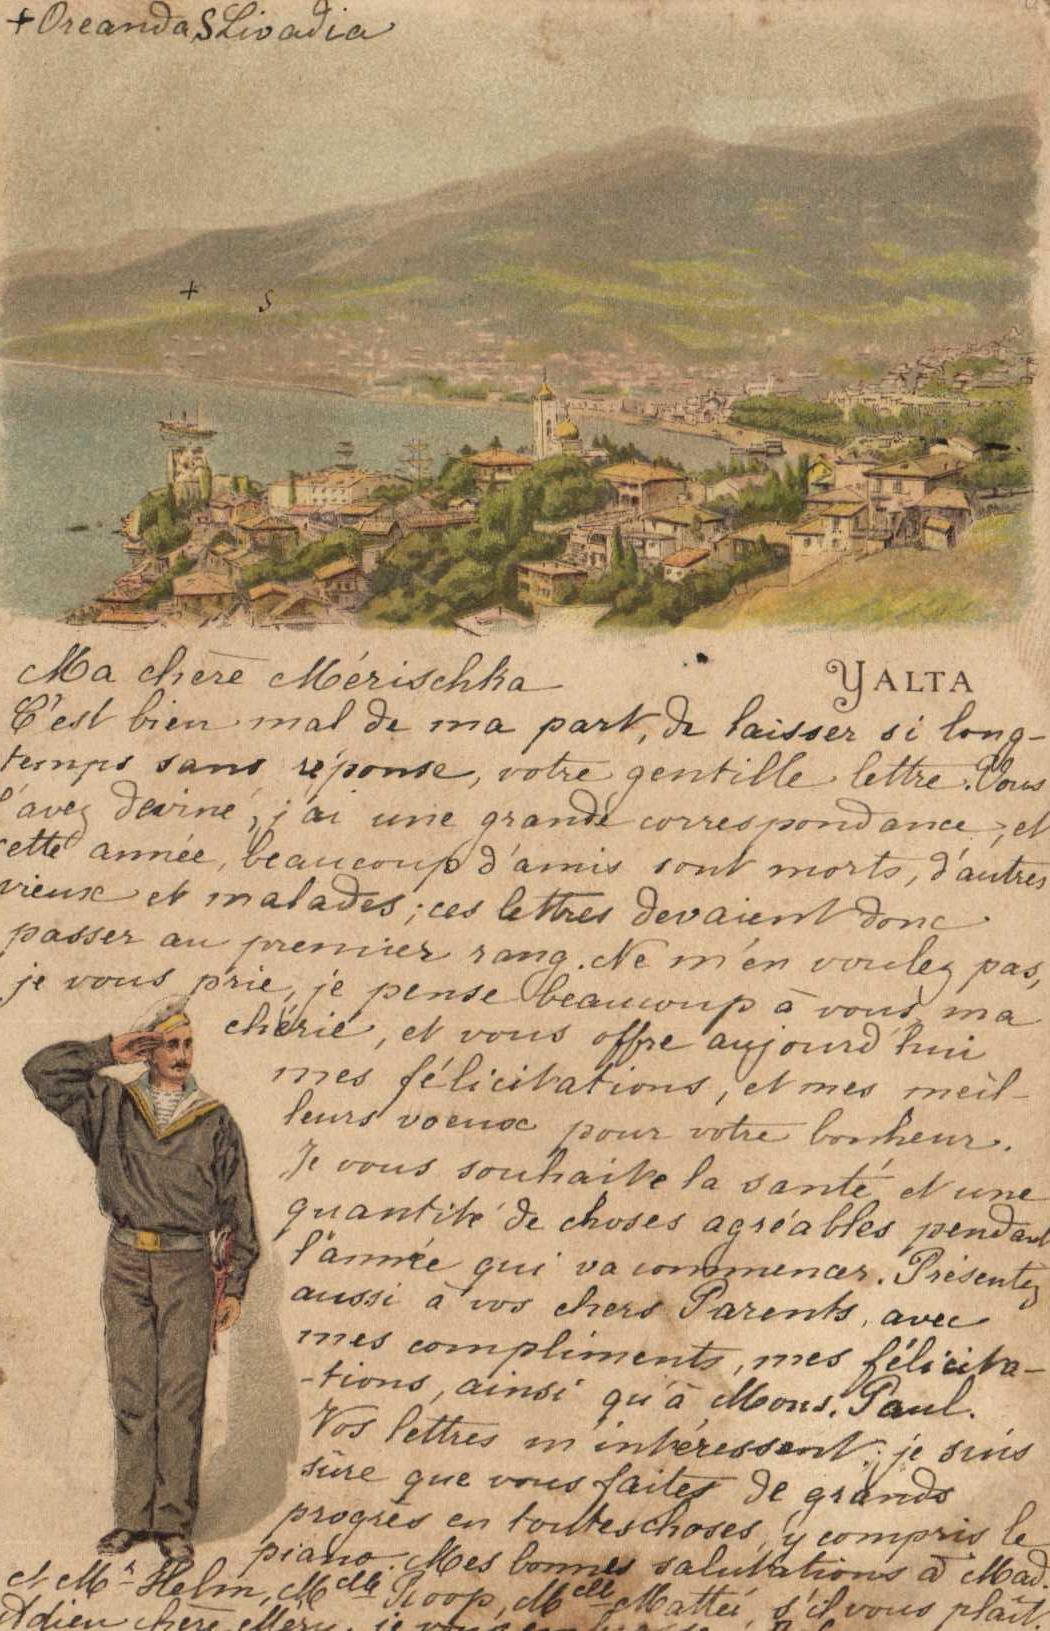 + Oreanda, S Livadia
Ma chère Mérischka
YALTA
C'est bien mal de ma part, de laisser si long-
temps sans réponse, votre gentille lettre. Vous
l'avez deviné, j'ai une grande correspondance, et
cette année, beaucoup d'amis sont morts, d'autres
vieux et malades; ces lettres devaient donc
passer au premier rang. Ne m'en voulez pas,
je vous prie, je pense beaucoup à vous, ma
chérie, et vous offre aujourd'hui
mes félicitations, et mes meil-
leurs voeux pour votre bonheur.
Je vous souhaite la santé et une
quantité de choses agréables pendant
l'année qui va commencer. Présentez
aussi à vos chers Parents, avec
mes compliments, mes félicita-
-tions, ainsi qu'à Mons. Paul.
Vos lettres m'intéressent; je suis
sûre que vous faites de grands
progrès en toutes choses, y compris le
piano. Mes bonnes salutations à Mad.
et Mr Helm, Melle Roop, Melle Mattei, s'il vous plaît.
Adieu chère Méry, je vous